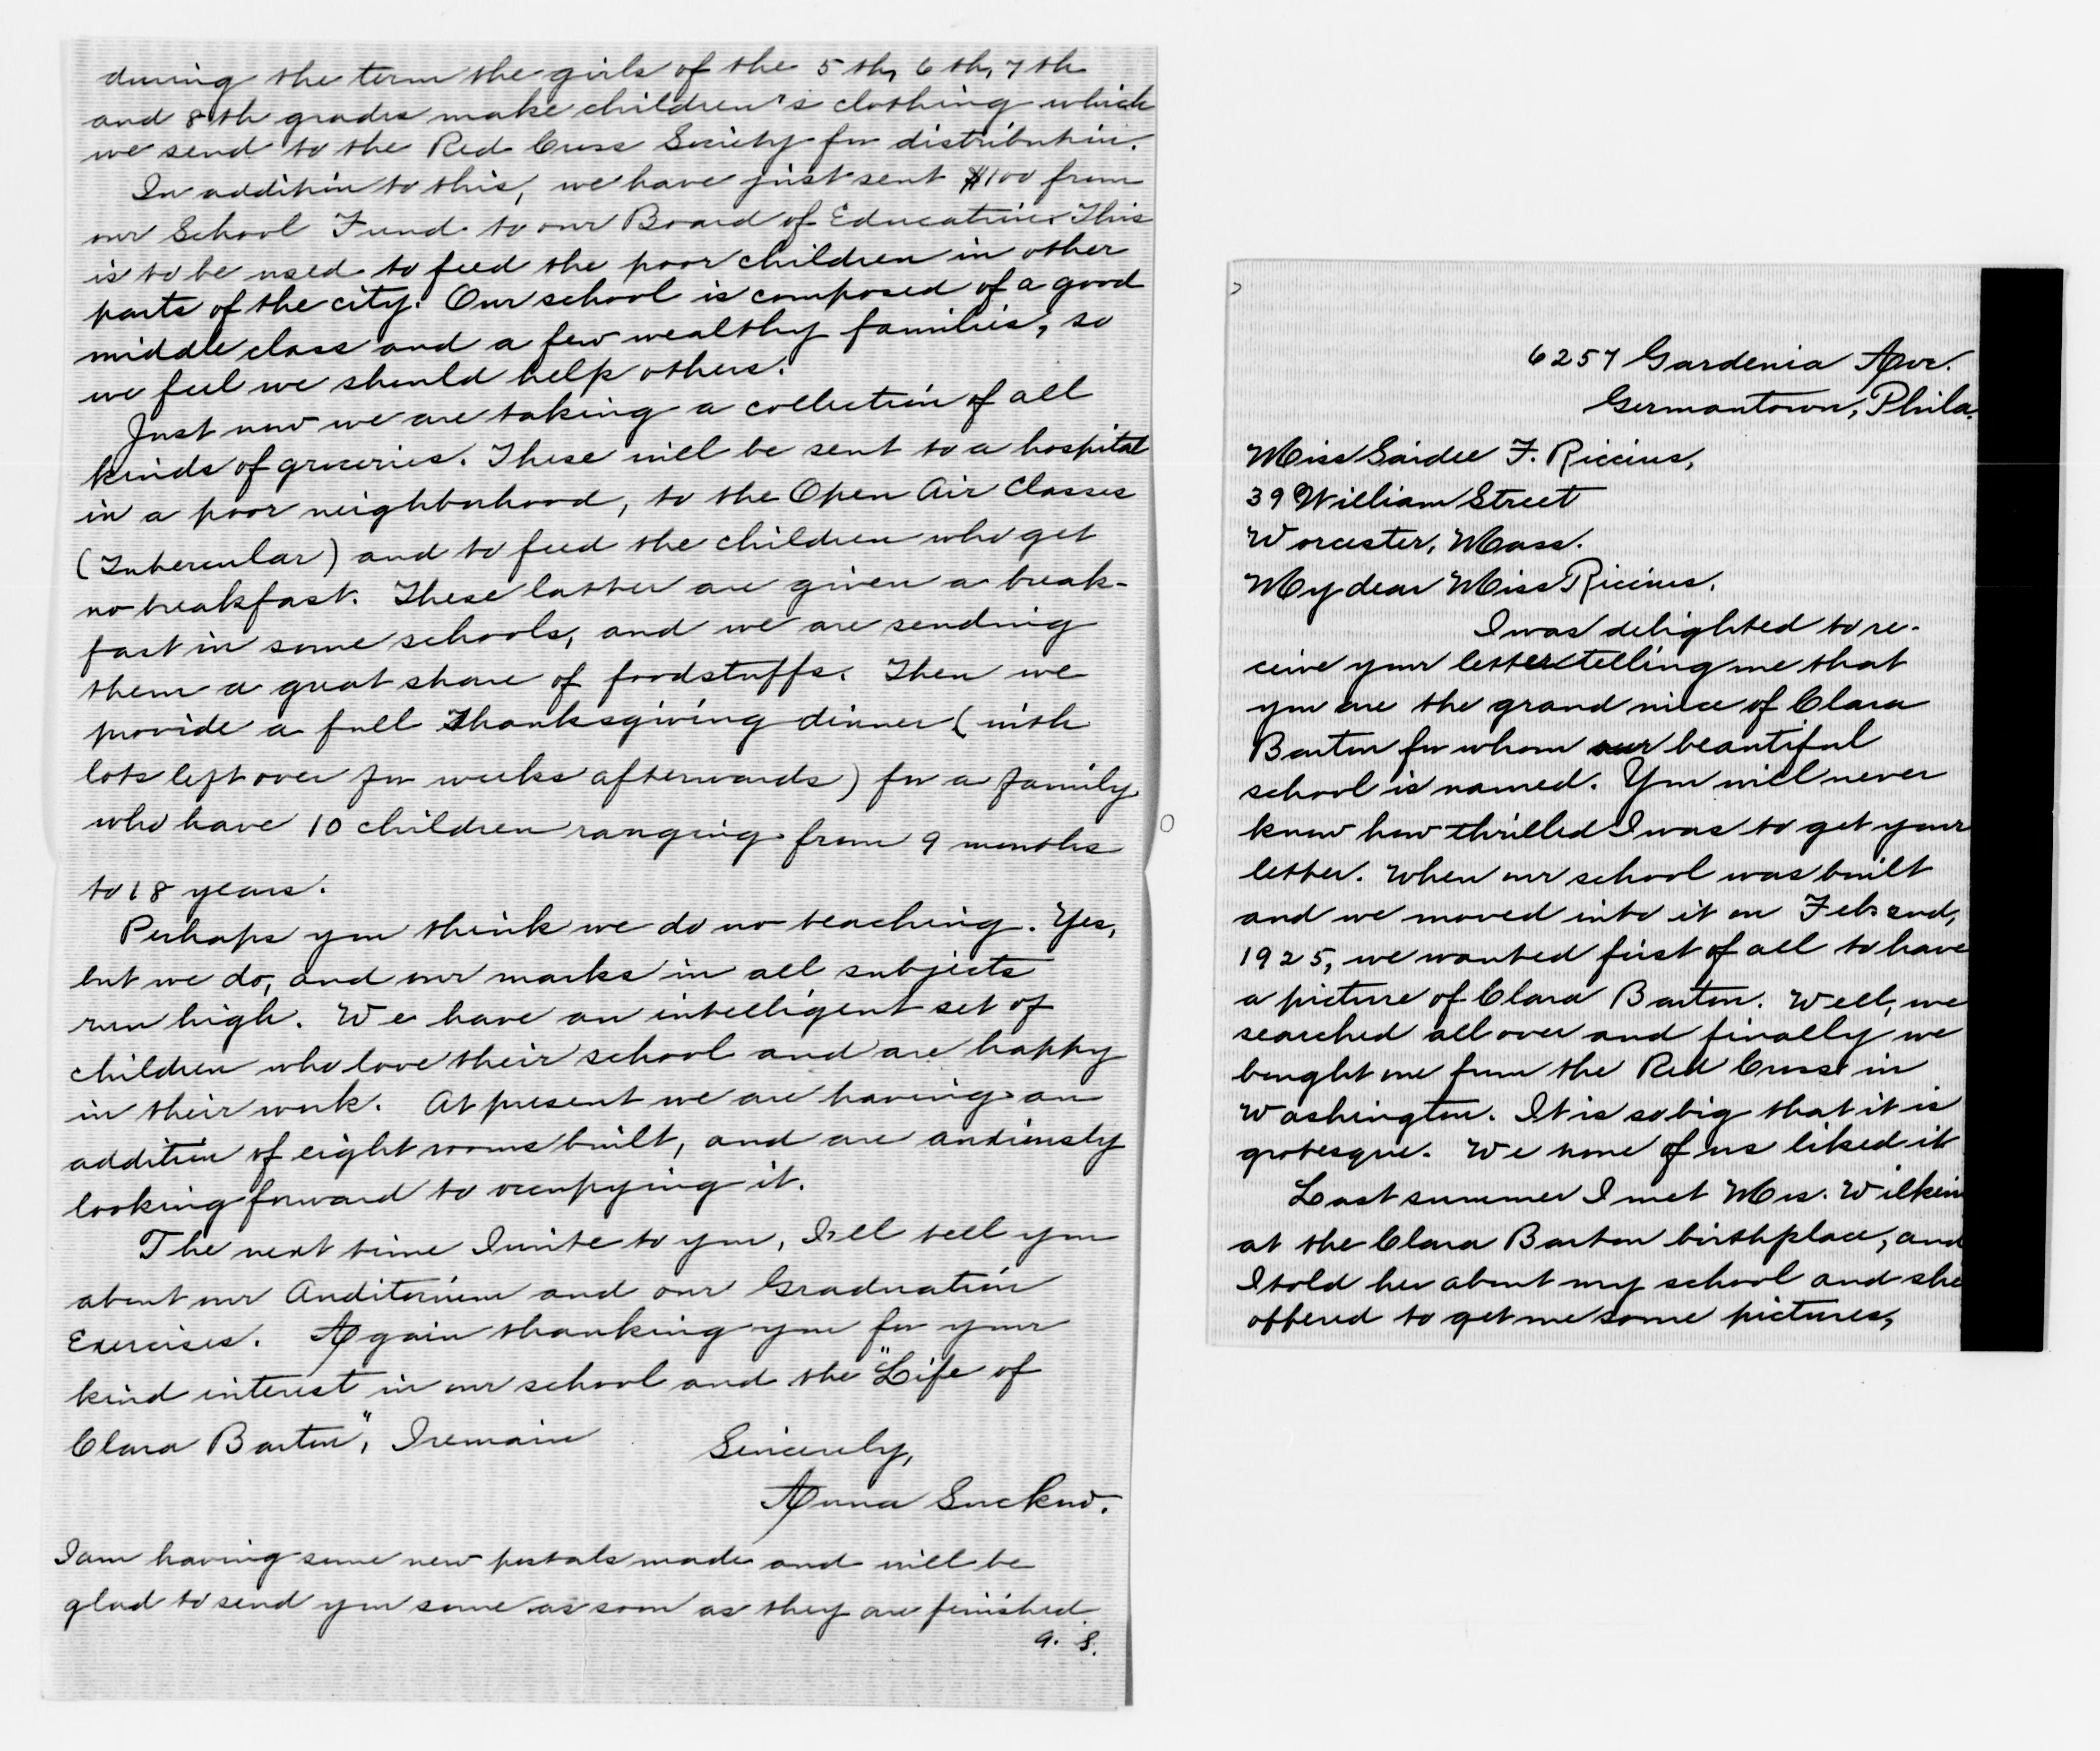 during the term the girls of the 5th, 6th, 7th
and 8th grades make children's clothing which
we send to the Red Cross Society for distribution.
In addition to this, we have just sent $100 from
our School Fund to our Board of Education. This
is to be used to feed the poor children in other
parts of the city. Our school is composed of a good
middle class and a few wealthy families, so
we feel we should help others.
Just now we are taking a collection of all
kinds of groceries. These will be sent to a hospital
in a poor neighborhood, to the Open Air Classes
(Tubercular) and to feed the children who get
no breakfast. These latter are given a break-
fast in some schools, and we are sending
them a great share of foodstuffs. Then we
provide a full Thanksgiving dinner (with
lots left over for weeks afterwards) for a family
who have 10 children ranging from 9 months
to 18 years.
Perhaps you think we do no teaching. Yes,
but we do, and our marks in all subjects
run high. We have an intelligent set of
children who love their school and are happy
in their work. At present we are having an
addition of eight rooms built, and are anxiously
looking forward to occupying it.
The next time I write to you, I'll tell you
about our Auditorium and our Graduation
Exercises. Again thanking you for your
kind interest in our school and the "Life of
Clara Barton", I remain
Sincerely,
Anna Suckow.
I am having some new postals made and will be
glad to send you some as soon as they are finished.
A. S.
6257 Gardenia Ave.
Germantown, Phila.
Miss Saidee F. Riccius,
39 William Street
Worcester, Mass.
My dear Miss Riccius.
I was delighted to re-
ceive your letter telling me that
you are the grand niece of Clara
Barton for whom our beautiful
school is named. You will never
know how thrilled I was to get your
letter. When our school was built
and we moved into it on Feb 2nd,
1925, we wanted first of all to have
a picture of Clara Barton. Well, we
searched all over and finally we
bought one from the Red Cross in
Washington. It is so big that it is
grotesque. We none of us liked it
Last summer I met Mrs. Wilkin
at the Clara Barton birthplace, and
I told her about my school and she
offered to get me some pictures,